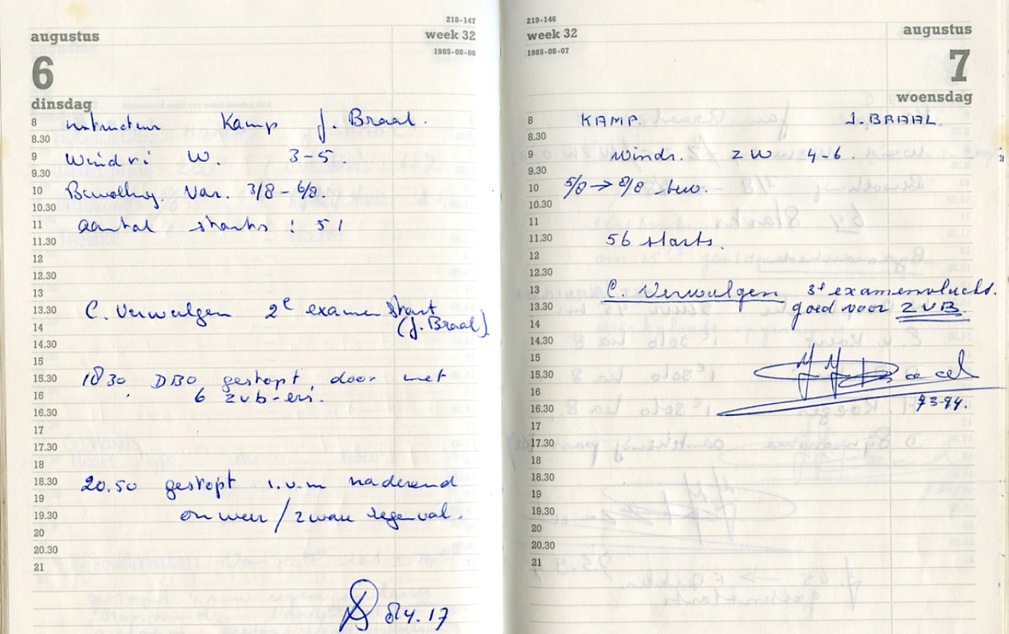 218-147
augustus
week 32
1985-08-06
6
dinsdag
8
8.30
9
9.30
10
10.30
11
11.30
12
12.30
13
13.30
14
14.30
15
15.30
16
16.30
17
17.30
18
18.30
19
19.30
20
20.30
21
instructeur Kamp J. Braal.
Windri W. 3-5.
Bewolking. Var. 3/8 - 6/8
aantal starts : 51
C. Verwulgen 2e examen start
(J. Braal)
1830 DBO gestopt, door met
6 zvb-ers.
20.50 gestopt i.v.m naderend
onweer / zware regenval.
84.17
219-146
week 32
1985-08-07
augustus
7
woensdag
8
8.30
9
9.30
10
10.30
11
11.30
12
12.30
13
13.30
14
14.30
15
15.30
16
16.30
17
17.30
18
18.30
19
19.30
20
20.30
21
KAMP. J. BRAAL.
Windr. ZW 4-6.
5/8 → 8/8 bew.
56 starts.
C. Verwulgen 3e examenvlucht.
goed voor ZVB.
93-94.